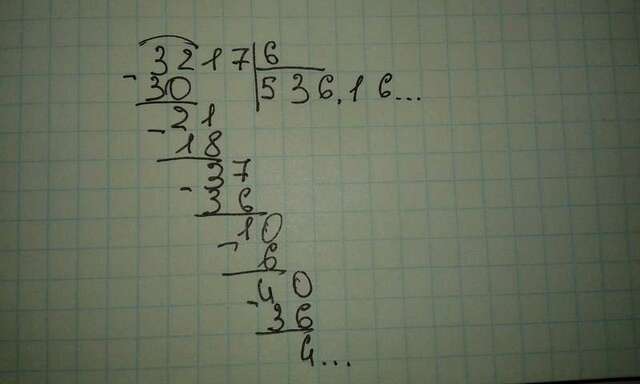 3217 6
- 30 536,16...
- 21
18
- 37
36
- 10
6
- 40
36
4...